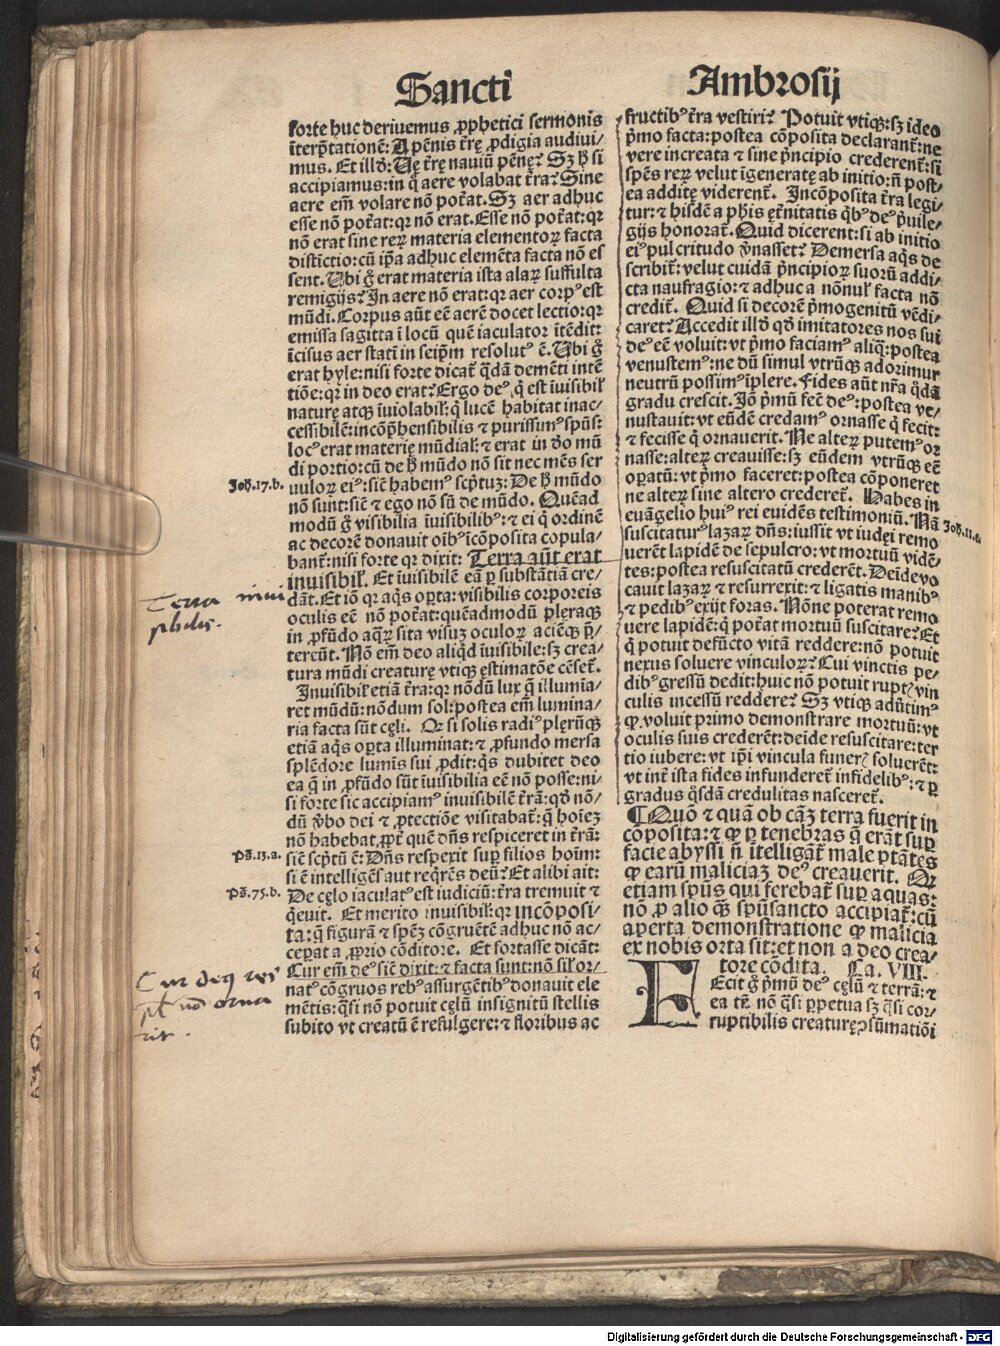 Sancti
Ambrosij
forte huc deriuemus ꝓphetici sermonis
īterp̄tationē: A pēnis t̄rę ꝓdigia audiui/
mus. Et illō: Vę t̄rę nauiū pēnę? Sꝫ ħ si
accipiamus: in q̄ aere volabat t̄ra? Sine
aere em̄ volare nō pot̄at. Sꝫ aer adhuc
esse nō pot̄at: qr nō erat. Esse nō pot̄at: qr
nō erat sine rerꝝ materia elementoꝝ facta
distīctio: cū ip̄a adhuc elemēta facta nō es
sent. Vbi ḡ erat materia ista alaꝝ suffulta
remigijs? In aere nō erat: qr aer corpꝰ est
mūdi. Corpus aūt eē aerē docet lectio: qr
emissa sagitta ī locū quē iaculator ītēdit:
īcisus aer statī in seip̄m resolutꝰ ē. Vbi ḡ
erat hyle: nisi forte dicat̄ q̄dā demēti intē
tiōe: qr in deo erat? Ergo deꝰ q̄ est īuisibil̄
naturę atqꝫ īuiolabil̄: q̄ lucē habitat inac/
cessibilē: incōp̄hensibilis ⁊ purissimꝰ spūs:
locꝰ erat materię mūdial̄: ⁊ erat in dō mū
di portio: cū de ħ mūdo nō sit nec mēs ser
Joħ.17.b.
uuloꝝ eiꝰ: siē habemꝰ scp̄tuꝫ: De ħ mūdo
nō sunt: siē ⁊ ego nō sū de mūdo. Quēad
modū ḡ visibilia īuisibilibꝰ: ⁊ ei q̄ ordinē
ac decorē donauit oībꝰ īcōposita copula/
bant̄: nisi forte qr dixit: Terra aūt erat
inuisibil̄. Et īuisibilē eā ꝑ substātiā cre/
Terra inui
sibilis.
dāt. Et iō qr aq̄s oꝑta: visibilis corporeis
oculis eē nō pot̄at: quēadmodū plęraqꝫ
in ꝓfūdo aqꝝ sita visuꝫ oculoꝝ aciēqꝫ p̄/
tereūt. Nō em̄ deo aliqd īuisibile: sꝫ crea/
tura mūdi creaturę vtiqꝫ ęstimatōe cēset̄.
Inuisibil̄ etiā t̄ra: qr nōdū lux q̄ illumīa/
ret mūdū: nōdum sol: postea em̄ lumina/
ria facta sūt cęli. Qꝛ si solis radiꝰ plęrūqꝫ
etiā aq̄s oꝑta illuminat: ⁊ ꝓfundo mersa
splēdore lumīs sui ꝓdit: q̄s dubitet deo
ea q̄ in ꝓfūdo sūt īuisibilia eē nō posse: ni/
si forte sic accipiamꝰ inuisibilē t̄rā: qō nō/
dū v̄bo dei ⁊ ꝓtectiōe visitabat̄: q̄ hoīeꝫ
nō habebat, ꝓpt̄ quē dn̄s respiceret in t̄rā:
Ps̄.13.a.
siē scp̄tū ē: Dn̄s respexit suꝑ filios hoīm:
si ē intelligēs aut reqrēs deū? Et alibi ait:
Ps̄.75.b.
De cęlo iaculatꝰ est iudiciū: t̄ra tremuit ⁊
q̄euit. Et merito inuisibil̄: qr incōposi/
ta: q̄ figurā ⁊ spēꝫ cōgruētē adhuc nō ac/
ceꝑat a ꝓprio cōditore. Et fortasse dicāt:
Cur em̄ deꝰ siē dixit: ⁊ facta sunt: nō sil̄ or/
Cur deus res
nō orna
uit.
natꝰ cōgruos rebꝰ assurgētibꝰ donauit ele
mētis: q̄si nō potuit cęlū insignitū stellis
subito vt creatū ē refulgere: ⁊ floribus ac
fructibꝰ t̄ra vestiri? Potuit vtiqꝫ: sꝫ ideo
p̄mo facta: postea cōposita declarant̄: ne
vere increata ⁊ sine p̄ncipio crederent̄: si
spēs rerꝝ velut īgeneratę ab initio: n̄ post/
ea additę viderent̄. Incōposita t̄ra legi/
tur: ⁊ hisdē a phīs ęt̄nitatis q̄bꝰ deꝰ p̄uile/
gijs honorat̄. Quid dicerent: si ab initio
eiꝰ pulcritudo v̄nasset? Demersa aq̄s de
scribit̄: velut cuidā p̄ncipioꝝ suorū addi/
cta naufragio: ⁊ adhuc a nōnul̄ facta nō
credit̄. Quid si decorē p̄mogenitū vēdi/
caret? Accedit illō qō imitatores nos sui
deꝰ eē voluit: vt p̄mo faciamꝰ aliq̄: postea
venustemꝰ: ne dū simul vtrūqꝫ adorimur
neutrū possimꝰ īplere. Fides aūt nr̄a q̄dā
gradu crescit. Iō p̄mū fecē deꝰ: postea ve/
nustauit: vt eūdē credamꝰ ornasse q̄ fecit:
⁊ fecisse q̄ ornauerit. Ne alteꝝ putemꝰ or
nasse: alteꝝ creauisse: sꝫ eūdem vtrūqꝫ eē
oꝑatū: vt p̄mo faceret: postea cōponeret
ne alteꝝ sine altero crederet̄. Habes in
euāgelio huiꝰ rei euidēs testimoniū. Nā
Joħ.11.e.
suscitaturꝰ lazaꝝ dn̄s: iussit vt iudęi remo
uerēt lapidē de sepulcro: vt mortuū vidē/
tes: postea resuscitatū crederēt. Deīde vo
cauit lazaꝝ ⁊ resurrexit: ⁊ ligatis manibꝰ
⁊ pedibꝰ exijt foras. Nōne poterat remo
uere lapidē: q̄ pot̄at mortuū suscitare? Et
q̄ potuit defūcto vitā reddere: nō potuit
nexus soluere vinculoꝝ? Cui vinctis pe/
dibꝰ gressū dedit: huic nō potuit ruptꝭ vin
culis incessū reddere? Sꝫ vtiqꝫ adūtimꝰ
ꝙ voluit primo demonstrare mortuū: vt
oculis suis crederēt: deīde resuscitare: ter
tio iubere: vt ip̄i vincula funerꝭ soluerēt:
vt int̄ ista fides infunderet̄ infidelibꝰ: ⁊ ꝑ
gradus q̄sdā credulitas nasceret̄.
¶ Quō ⁊ quā ob cāꝫ terra fuerit in
cōposita: ⁊ ꝙ ꝑ tenebras q̄ erāt suꝑ
facie abyssi n̄ ītelligāt̄ male ptātes
ꝙ earū maliciaꝫ deꝰ creauerit. Qꝛ
etiam spūs qui ferebat̄ suꝑ aquas:
nō ꝓ alio qꝫ spūsancto accipiat̄: cū
aperta demonstratione ꝙ malicia
ex nobis orta sit: et non a deo crea/
tore cōdita. Ca. VIII.
FEcit ḡ p̄mū deꝰ cęlū ⁊ terrā: ⁊
ea tn̄ nō q̄si ꝑpetua sꝫ q̄si cor/
ruptibilis creaturę ꝯsūmatiōi
Digitalisierung gefördert durch die Deutsche Forschungsgemeinschaft - DFG